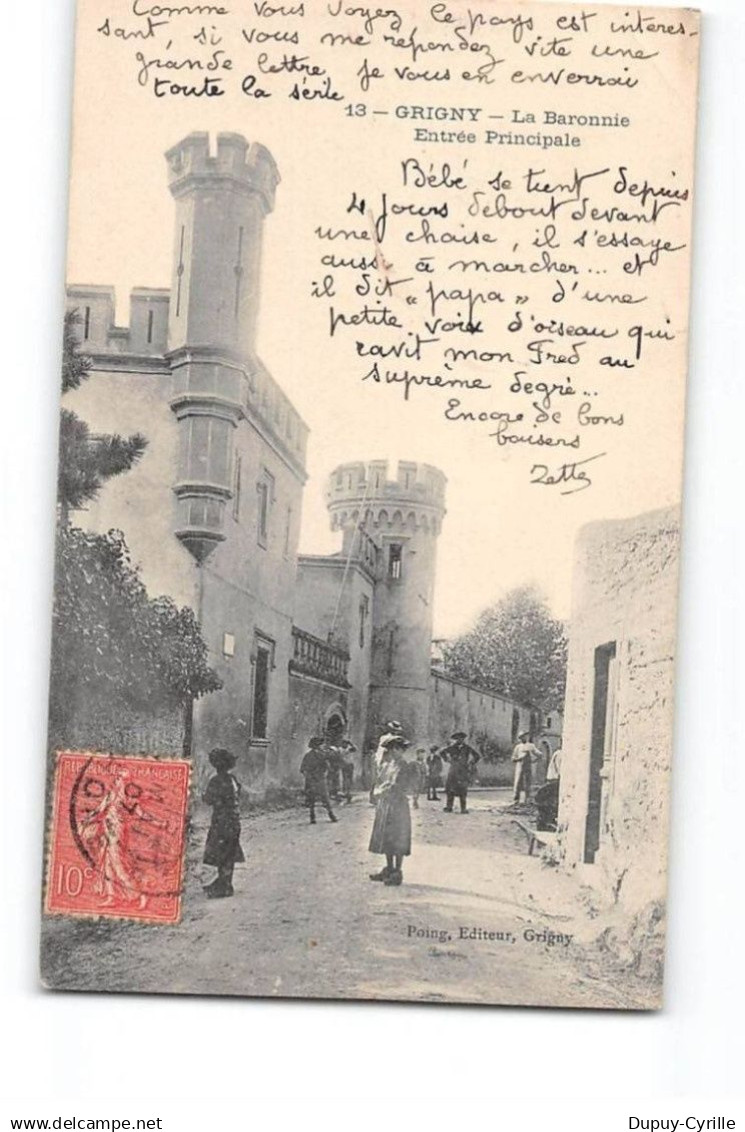 Comme vous voyez le pays est interes-
sant, si vous me répondez vite une
grande lettre, je vous en enverrai
toute la série
13 — GRIGNY — La Baronnie
Entrée Principale
Bébé se tient depuis
4 jours debout devant
une chaise, il s'essaye
aussi à marcher... et
il dit "papa" d'une
petite voix d'oiseau qui
ravit mon Fred au
suprême degré...
Encore de bons
baisers
Zette
REPUBLIQUE FRANÇAISE
10c
Poing, Editeur, Grigny
Dupuy-Cyrille